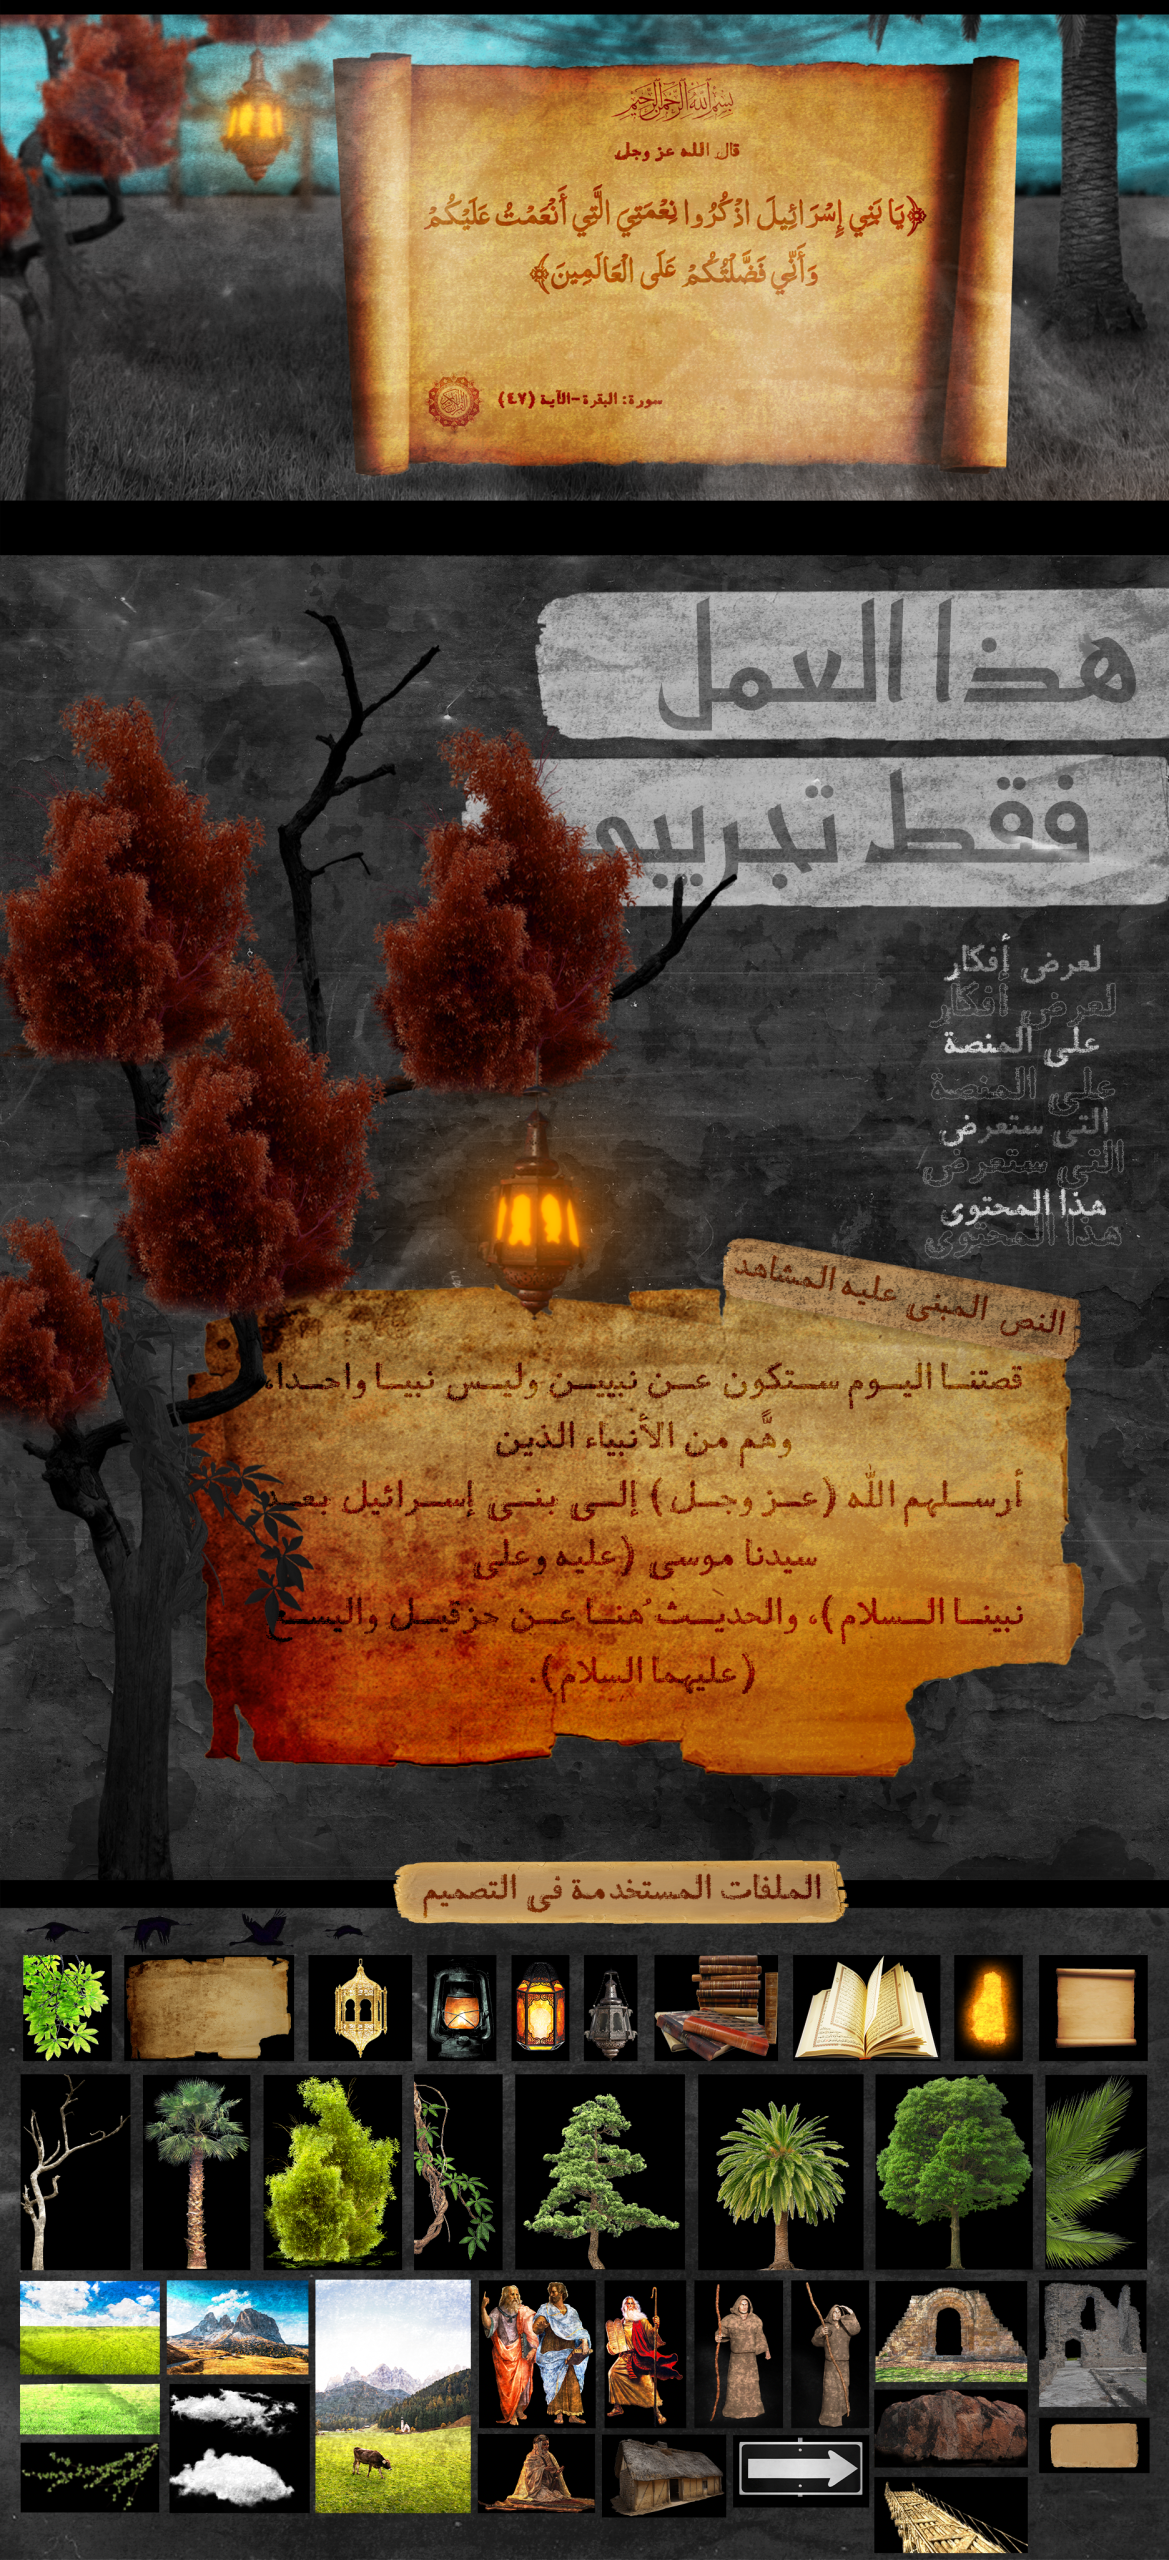 بسم الله الرحمن الرحيم
قال الله عز وجل
﴿يَا بَنِي إِسْرَائِيلَ اذْكُرُوا نِعْمَتِيَ الَّتِي أَنْعَمْتُ عَلَيْكُمْ
وَأَنِّي فَضَّلْتُكُمْ عَلَى الْعَالَمِينَ﴾
سورة: البقرة-الآية (٤٧)
هذا العمل
فقط تجريبي
لعرض أفكار
لعرض أفكار
على المنصة
على المنصة
التي ستعرض
التي ستعرض
هذا المحتوى
هذا المحتوى
النص المبنى عليه المشاهد
قصتنا اليوم ستكون عن نبيين وليس نبيا واحدا،
وهَّم من الأنبياء الذين
أرسلهم الله (عز وجل) إلى بني إسرائيل بعد
سيدنا موسى (عليه وعلى
نبينا السلام)، والحديث ُهنا عن حزقيل واليسع
(عليهما السلام).
الملفات المستخدمة في التصميم